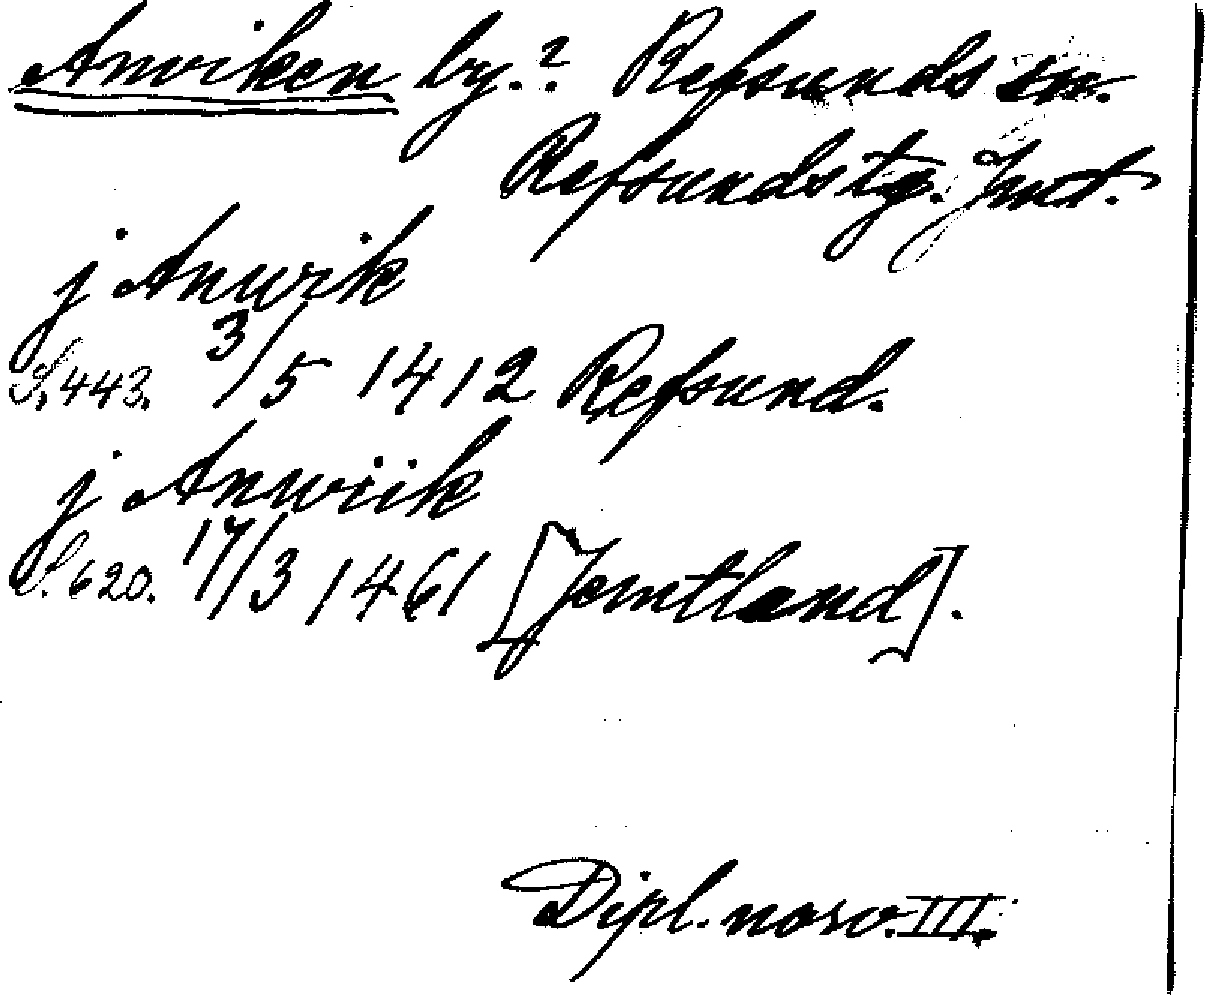 Anviken by.? Refsunds sn.
Refsunds tg. Jmt.
j Anwik
S. 443. 3/5 1412 Refsund.
j Anwiik
S. 620. 17/3 1461 [Jemtland].
Dipl. norv. III.